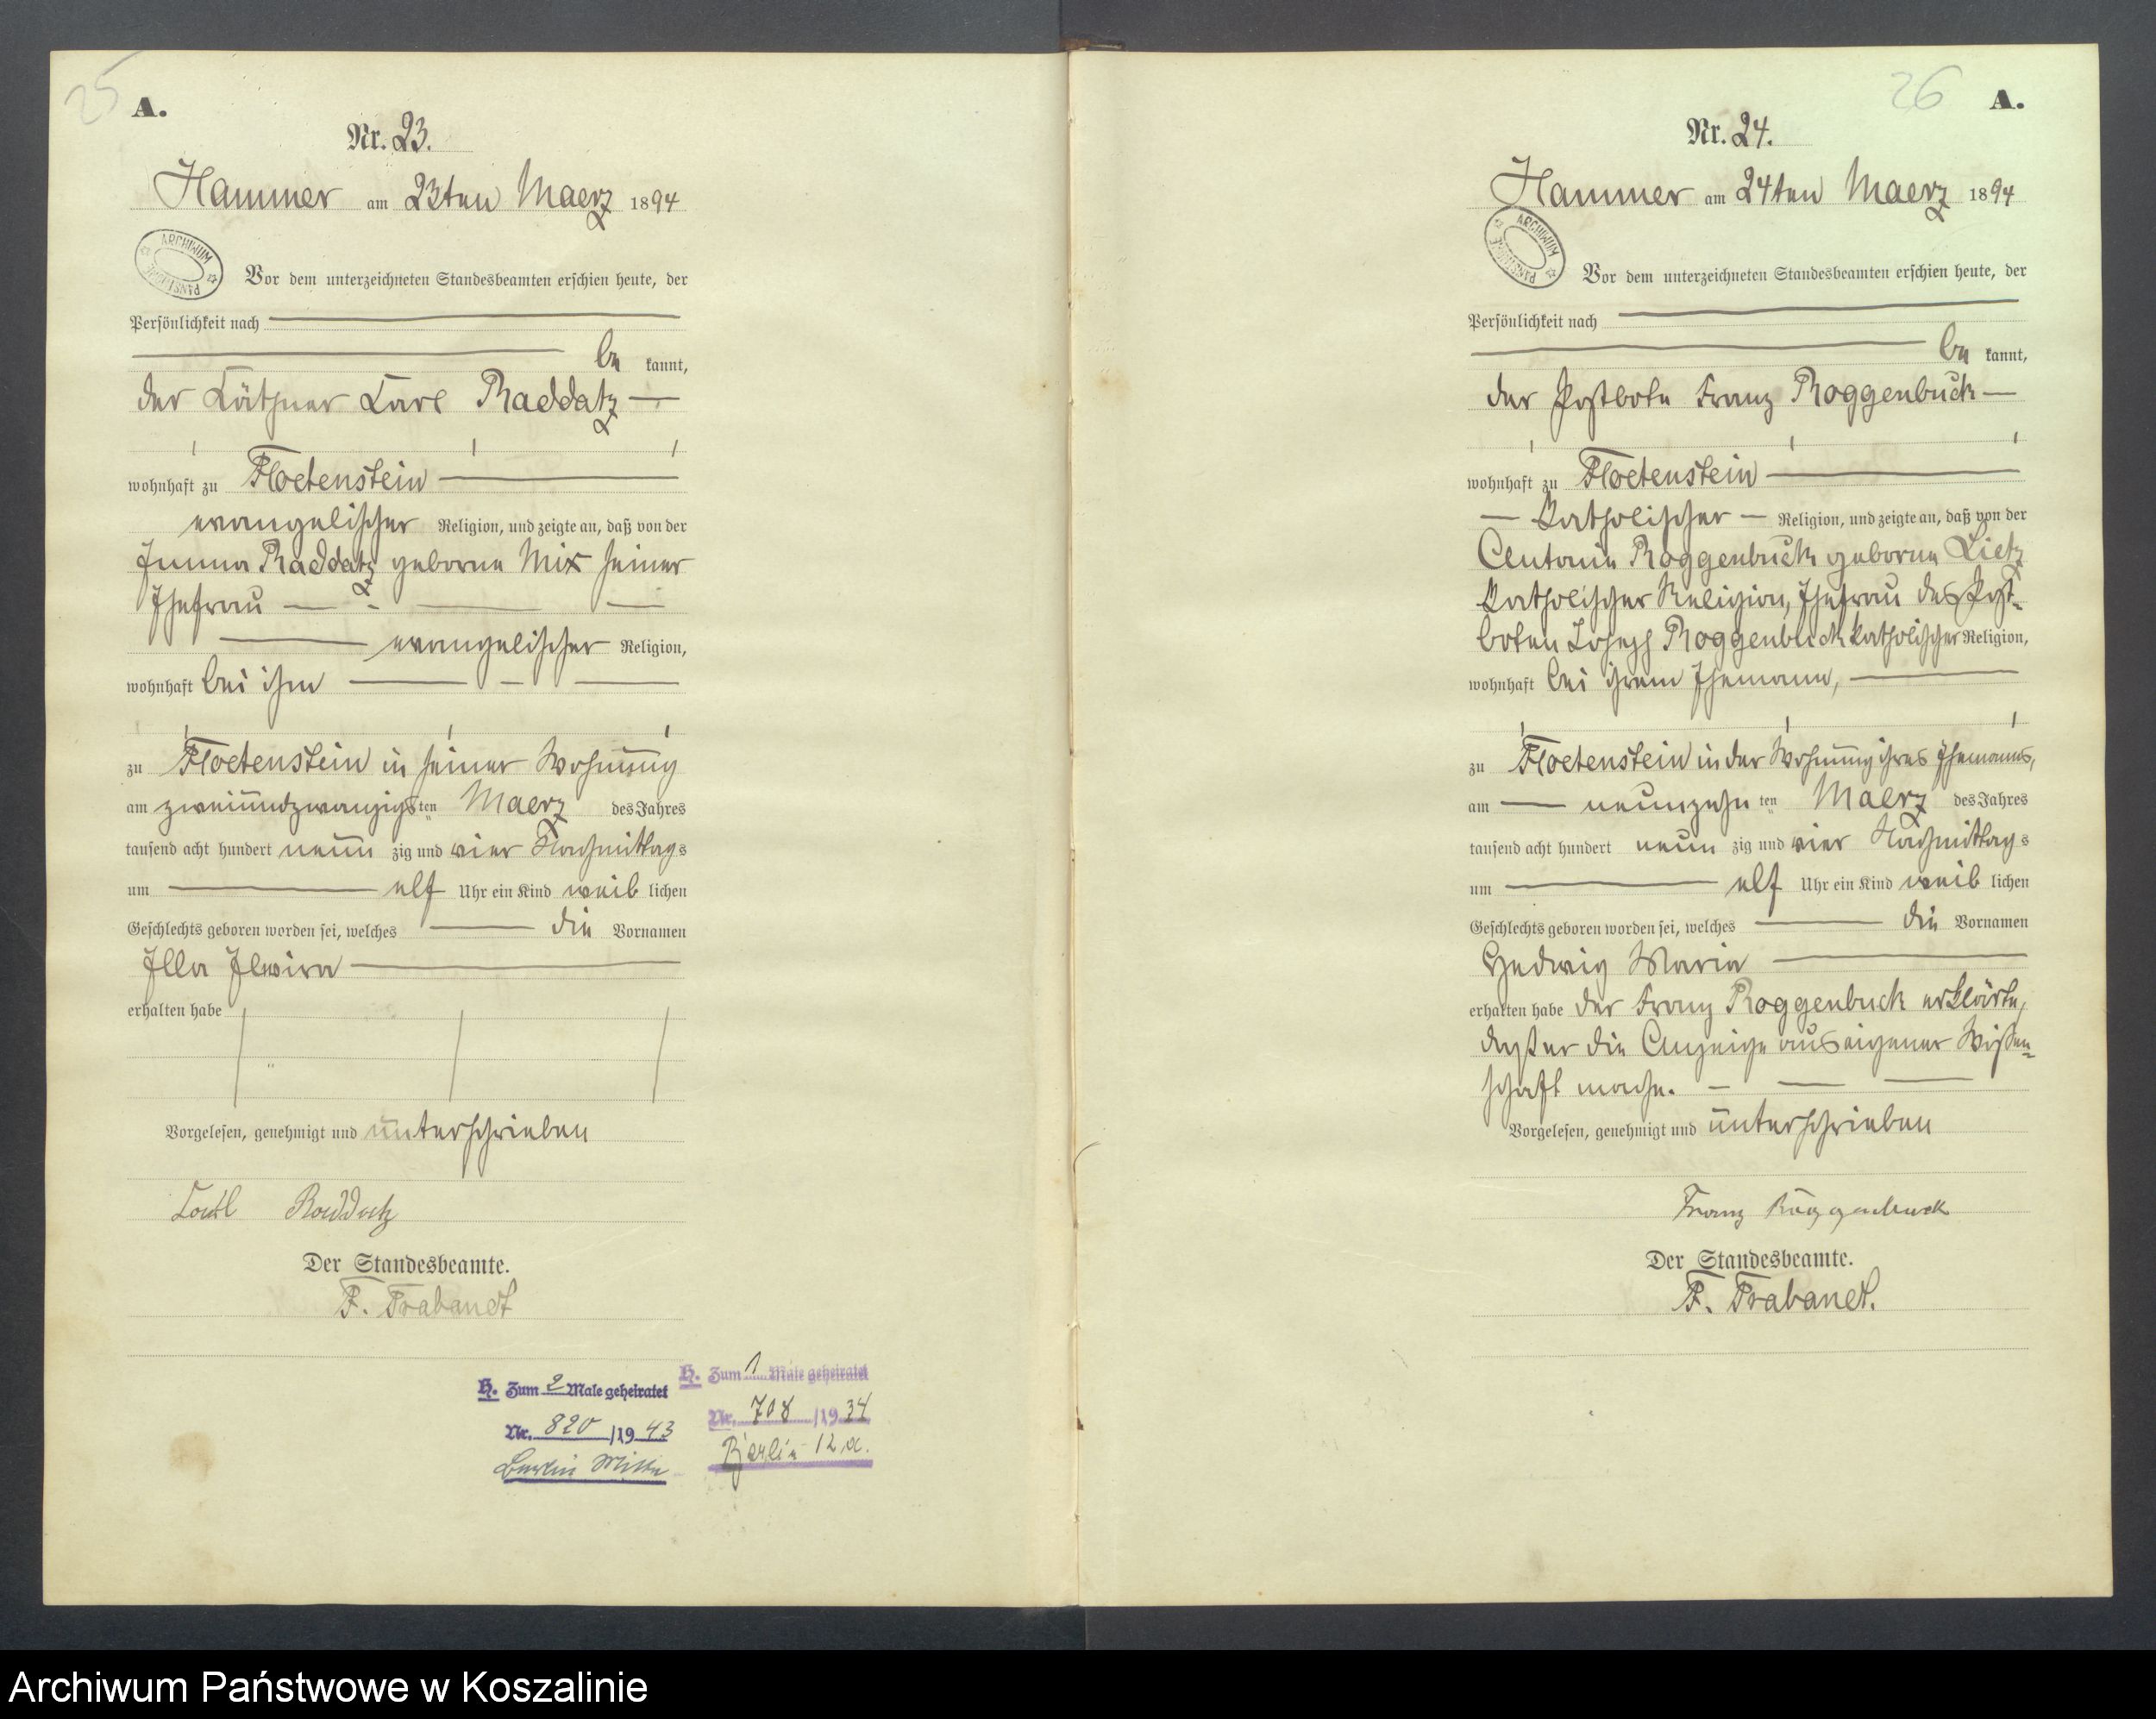 25
A.
Nr. 23.
Hammer am 23ten Maerz 1894
ARCHIWUM PAŃSTWOWE
Vor dem unterzeichneten Standesbeamten erschien heute, der
Persönlichkeit nach
be kannt,
der Käthner Carl Raddatz
wohnhaft zu Floetenstein
evangelischer Religion, und zeigte an, daß von der
Emma Raddatz geborne Mix seiner
Ehefrau
evangelischer Religion,
wohnhaft bei ihm
zu Floetenstein in seiner Wohnung
am zweiundzwanzigsten Maerz des Jahres
tausend acht hundert neun zig und vier Nachmittags
um elf Uhr ein Kind weib lichen
Geschlechts geboren worden sei, welches die Vornamen
Ella Elwira
erhalten habe
Vorgelesen, genehmigt und unterschrieben
Carl Raddatz
Der Standesbeamte.
F. Trabandt
H. Zum 2 Male geheiratet
Nr. 820 /1943
Berlin Mitte
H. Zum 1 Male geheiratet
Nr. 708 /1934
Berlin 12a.
26
A.
Nr. 24.
Hammer am 24ten Maerz 1894
ARCHIWUM PAŃSTWOWE
Vor dem unterzeichneten Standesbeamten erschien heute, der
Persönlichkeit nach
be kannt,
der Postbote Franz Roggenbuck
wohnhaft zu Floetenstein
katholischer Religion, und zeigte an, daß von der
Antonie Roggenbuck geborne Lietz
katholischer Religion, Ehefrau des Post-
boten Joseph Roggenbuck katholischer Religion,
wohnhaft bei ihrem Ehemann,
zu Floetenstein in der Wohnung ihres Ehemanns,
am neunzehn ten Maerz des Jahres
tausend acht hundert neun zig und vier Nachmittags
um elf Uhr ein Kind weib lichen
Geschlechts geboren worden sei, welches die Vornamen
Hedwig Maria
erhalten habe der Franz Roggenbuck erklärte,
daß er die Anzeige aus eigener Wißen-
schaft mache.
Vorgelesen, genehmigt und unterschrieben
Franz Roggenbuck
Der Standesbeamte.
F. Trabandt.
Archiwum Państwowe w Koszalinie